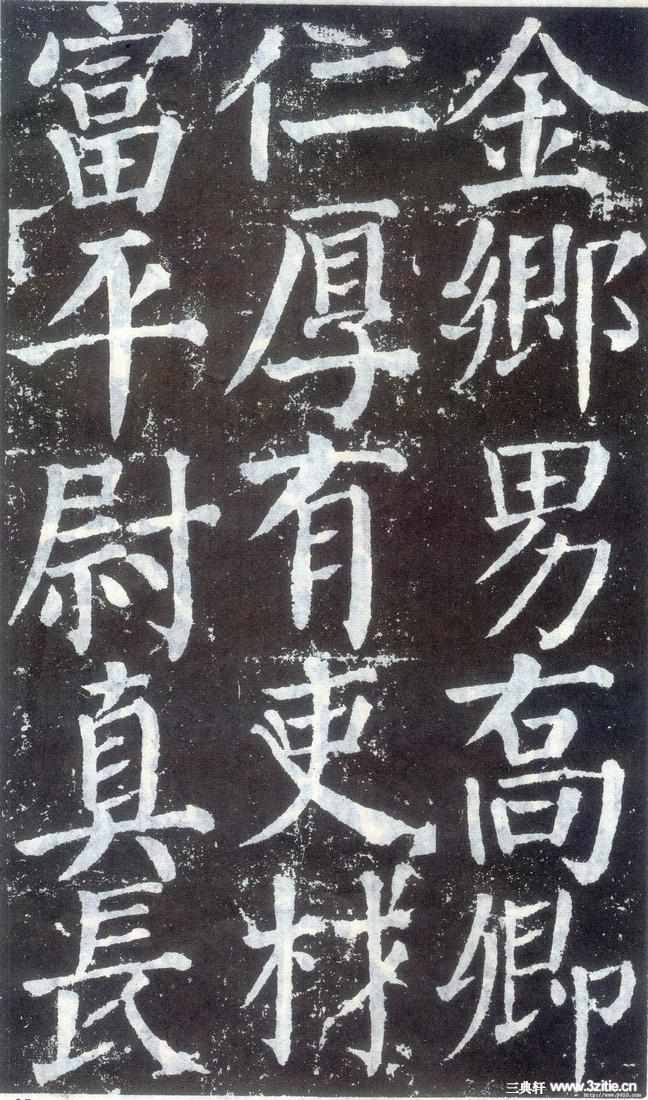 金鄉男喬卿
仁厚有吏材
富平尉真長
三典轩 www.3zitie.cn